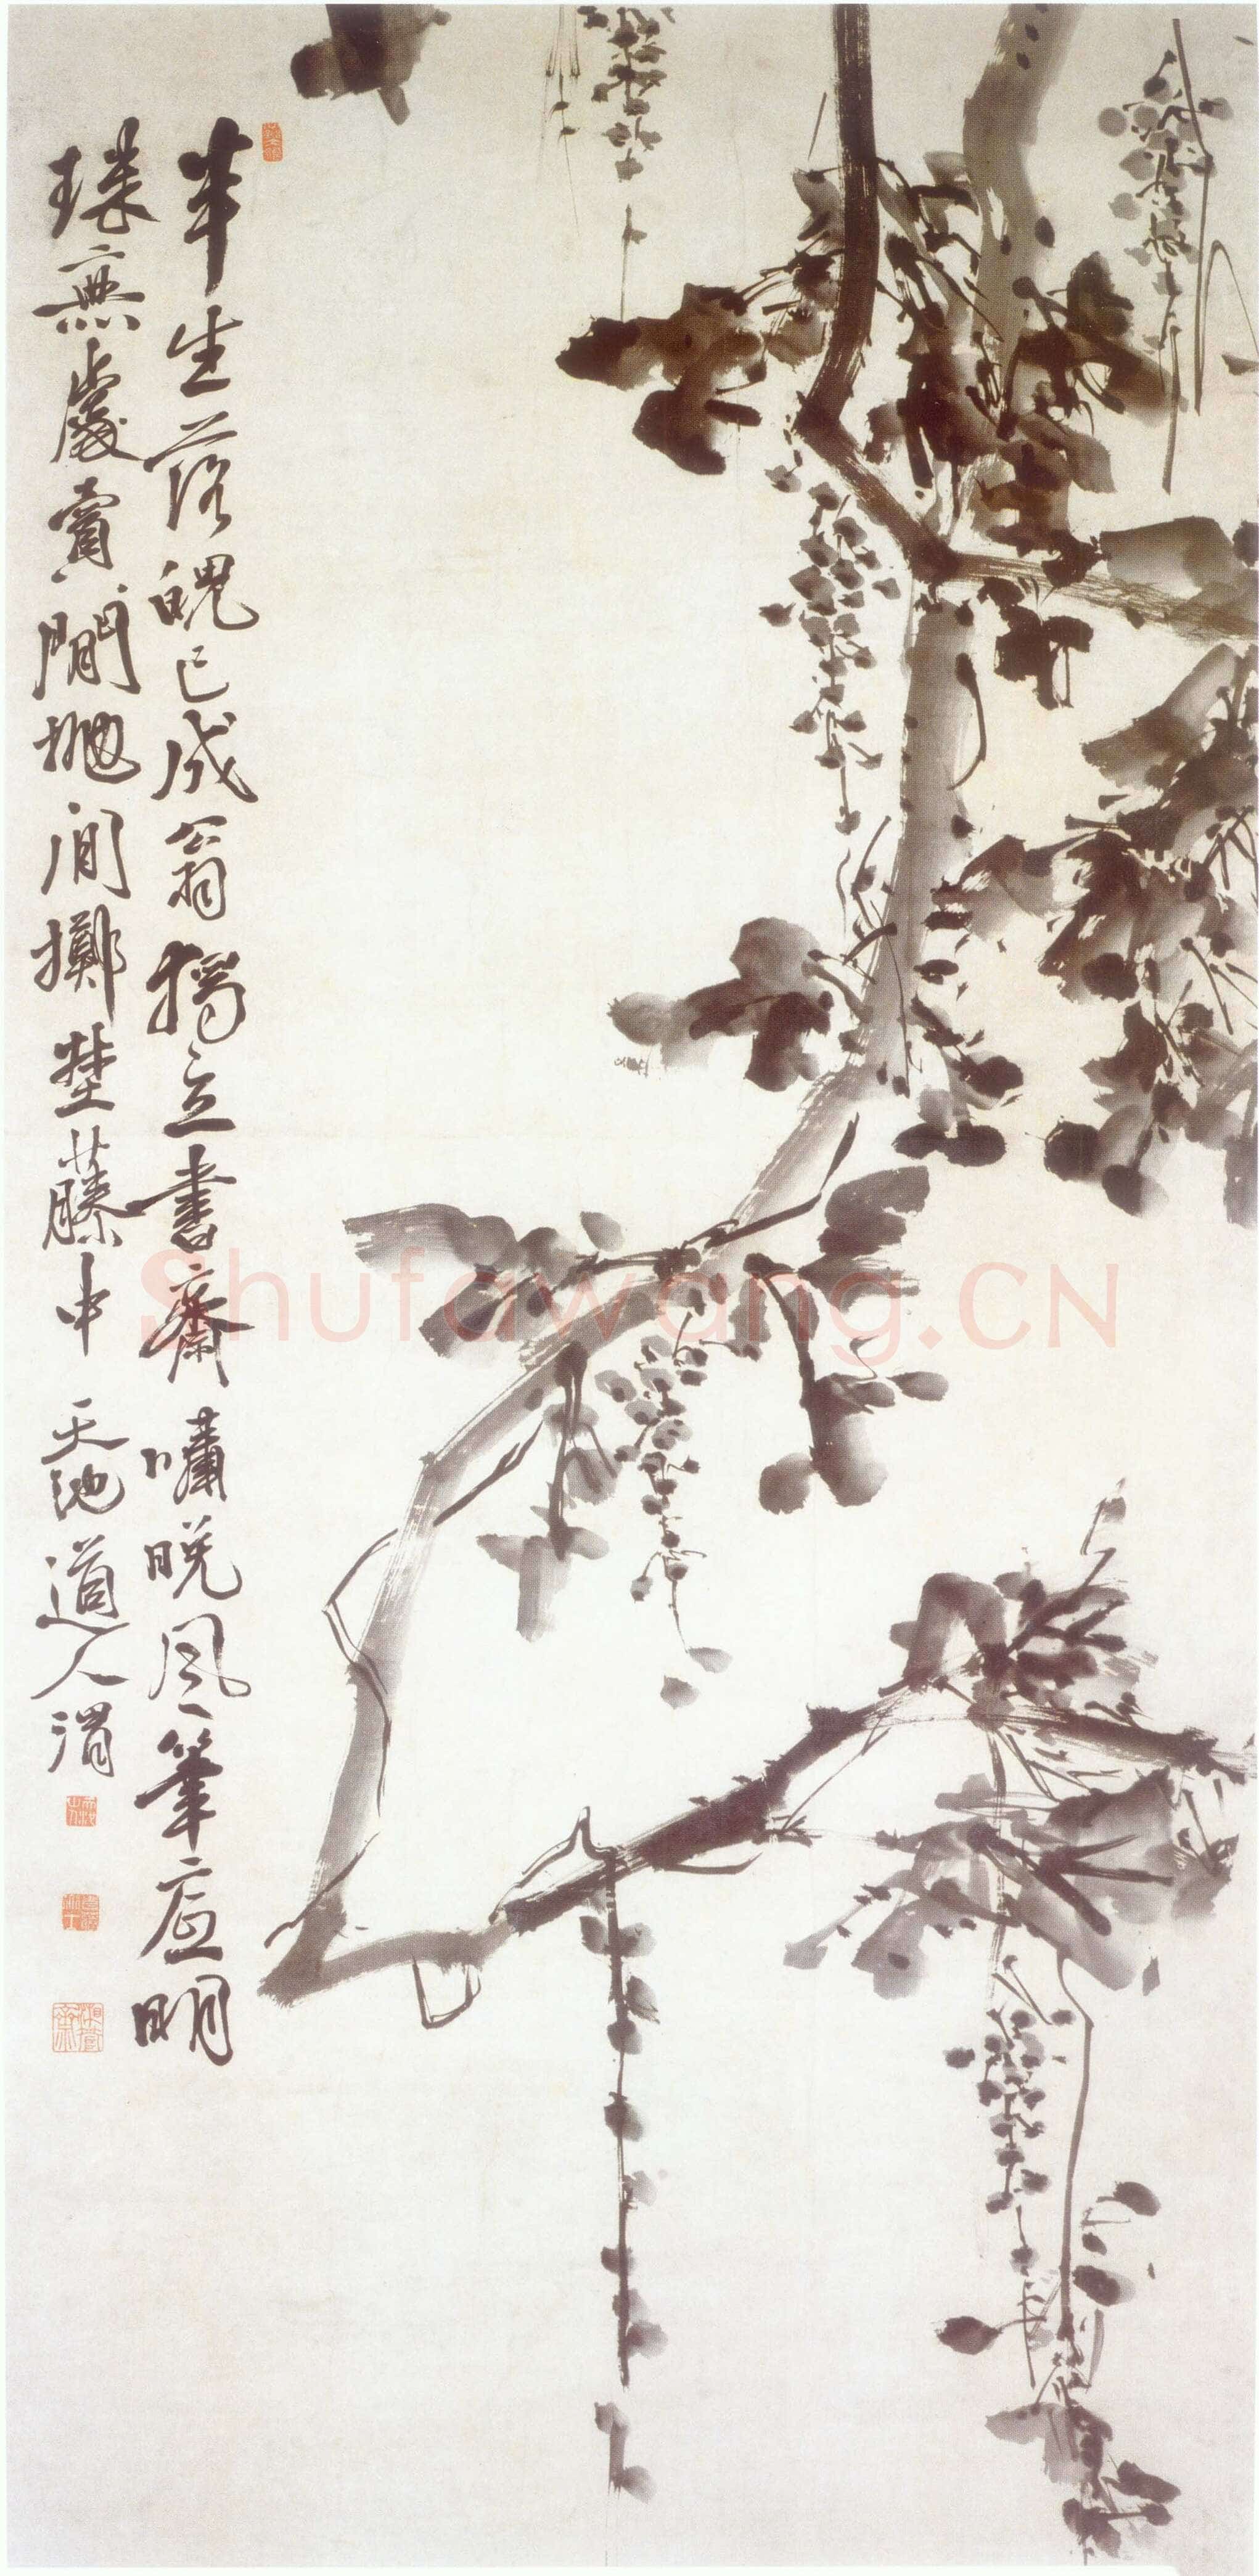 半生落魄已成翁獨立書齋嘯晚風筆底明
珠無處賣閒拋閒擲埜藤中 天池道人渭
Shufawang.CN